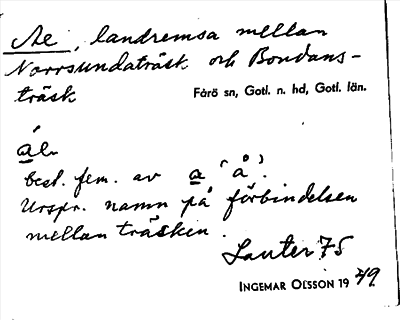 Ae, landremsa mellan
Norrsundaträsk och Bondans-
träsk
Fårö sn, Gotl. n. hd, Gotl. län.
best. fem. av a 'å'.
Urspr. namn på förbindelsen
mellan träsken.
Lauter 75
INGEMAR OLSSON 1949